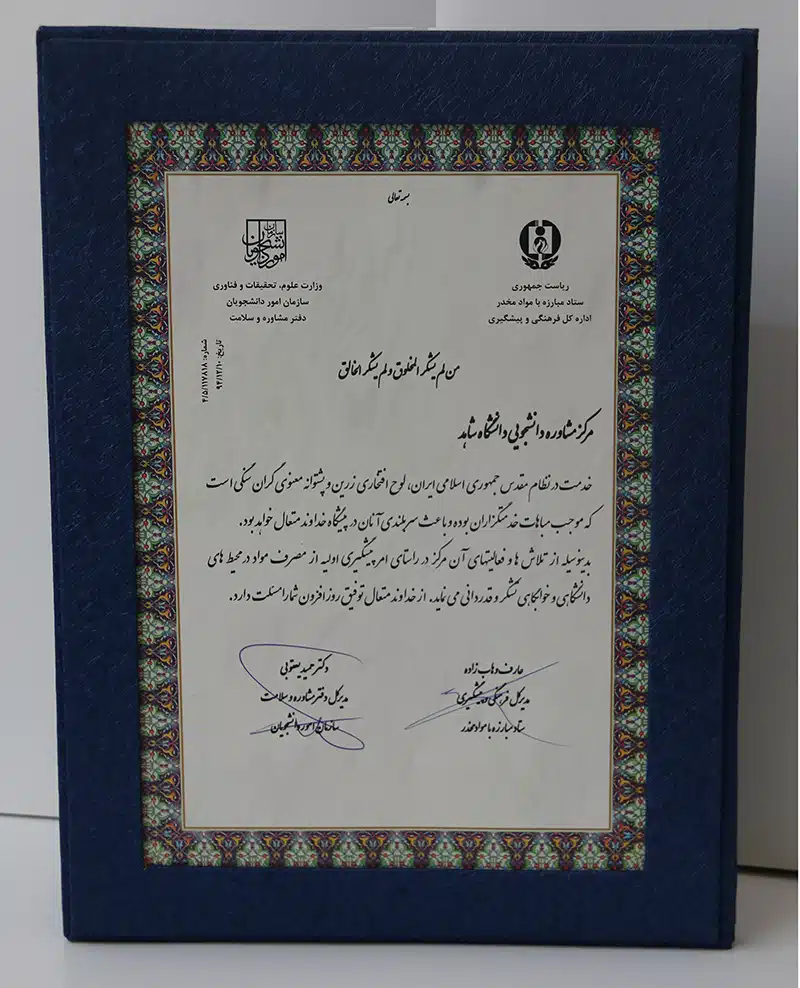 بسمه تعالی
ریاست جمهوری
ستاد مبارزه با مواد مخدر
اداره کل فرهنگی و پیشگیری
سازمان امور دانشجویان
وزارت علوم، تحقیقات و فناوری
سازمان امور دانشجویان
دفتر مشاوره و سلامت
تاریخ: ۹۴/۱۲/۱۰
شماره: ۴/۵/۱۱۷۸۱۸
من لم یشکر المخلوق و لم یشکر الخالق
مرکز مشاوره دانشجویی دانشگاه شاهد
خدمت در نظام مقدس جمهوری اسلامی ایران، لوح افتخاری زرین و پشتوانه معنوی گران سنگی است
که موجب مباهات خدمتگزاران بوده و باعث سربلندی آنان در پیشگاه خداوند متعال خواهد بود.
بدینوسیله از تلاش ها و فعالیتهای آن مرکز در راستای امر پیشگیری اولیه از مصرف مواد در محیط های
دانشگاهی و خوابگاهی تشکر و قدردانی می نماید. از خداوند متعال توفیق روز افزون شما را مسئلت دارد.
عارف وهاب زاده
مدیر کل فرهنگی و پیشگیری
ستاد مبارزه با مواد مخدر
دکتر حمید یعقوبی
مدیر کل دفتر مشاوره و سلامت
سازمان امور دانشجویان